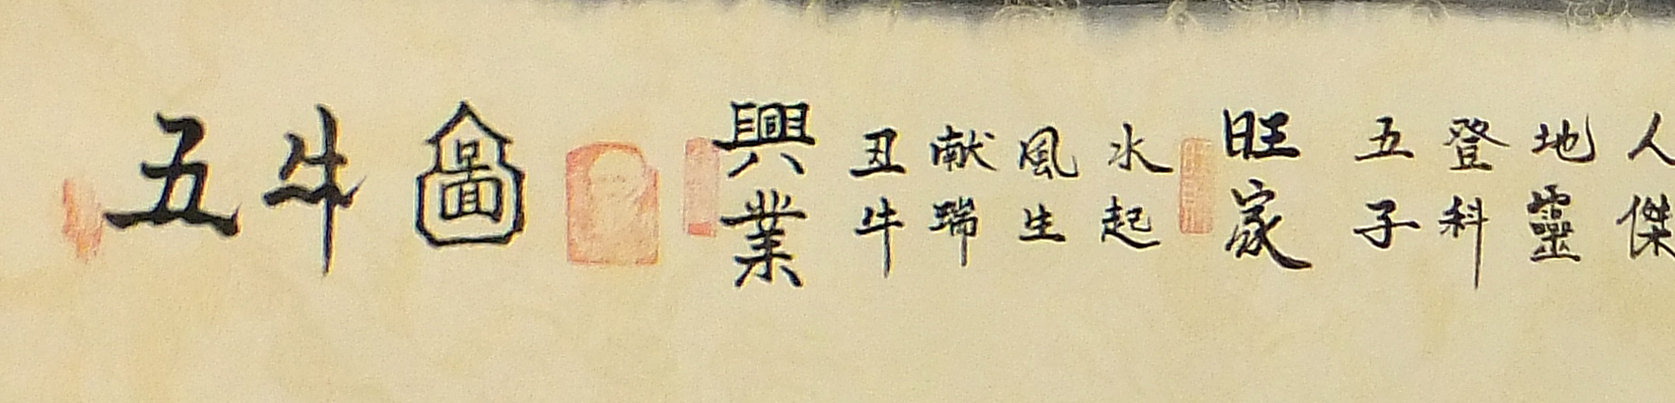 五牛圖
興業
丑牛
献瑞
風生
水起
旺家
五子
登科
地靈
人傑